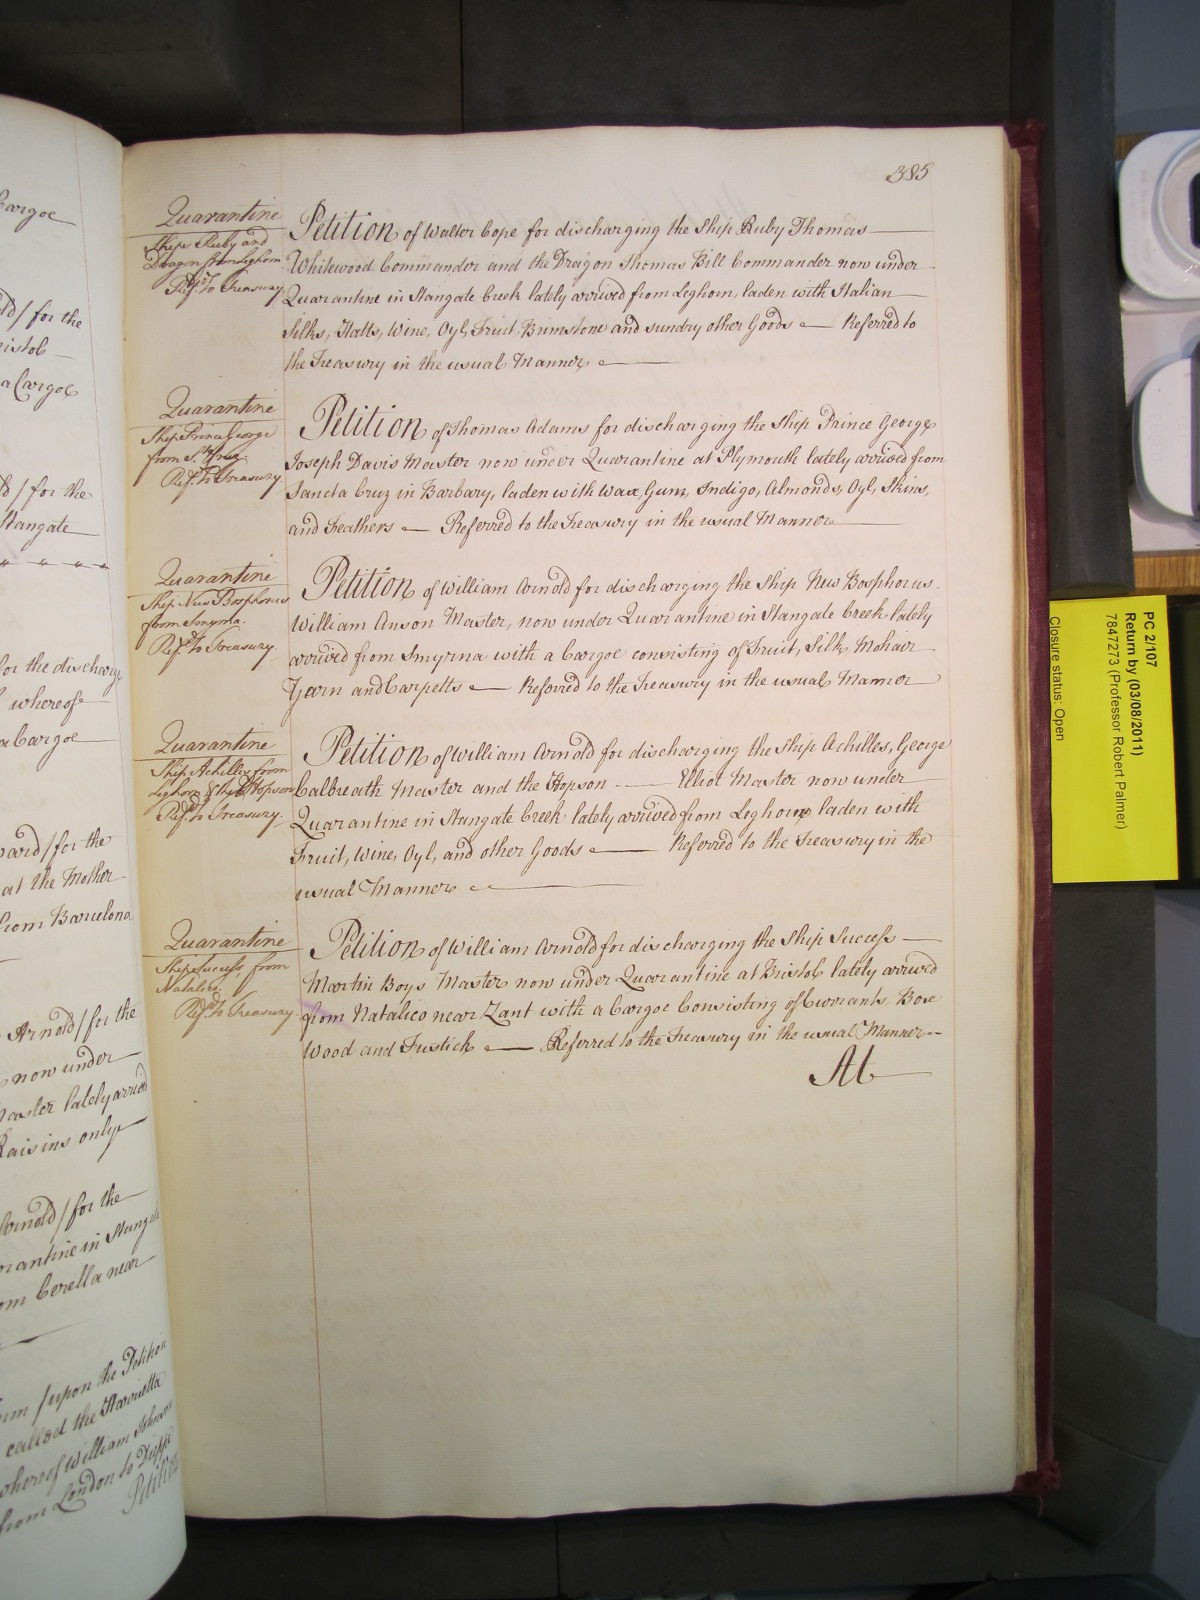 385
Quarantine
Ship Ruby and
Dragon from Leghorn
Ref.d to Treasury.
Petition of Walter Cope for discharging the Ship Ruby Thomas
Whitewood Commander and the Dragon Thomas Bill Commander now under
Quarantine in Stangate Creek lately arrived from Leghorn, laden with Italian
Silks, Hatts, Wine, Oyl, Fruit, Brimstone and sundry other Goods — Referred to
the Treasury in the usual Manner —
Quarantine
Ship Prince George
from
Ref.d to Treasury.
Petition of Thomas Adams for discharging the Ship Prince George
Joseph Davis Master now under Quarantine at Plymouth lately arrived from
Sancta Cruz in Barbary, laden with Wax, Gum, Indigo, Almonds, Oyl, Skins,
and Feathers — Referred to the Treasury in the usual Manner
Quarantine
Ship New Bosphorus
from Smyrna.
Ref.d to Treasury
Petition of William Arnold for discharging the Ship New Bosphorus
William Anson Master, now under Quarantine in Stangate Creek lately
arrived from Smyrna with a Cargoe consisting of Fruit, Silk Mohair
Yarn and Carpetts — Referred to the Treasury in the usual Manner
Quarantine
Ship Achilles from
Leghorn & the Hopson
Ref.d to Treasury.
Petition of William Arnold for discharging the Ship Achilles, George
Calbreath Master and the Hopson —— Elliot Master now under
Quarantine in Stangate Creek lately arrived from Leghorn laden with
Fruit, Wine, Oyl, and other Goods — Referred to the Treasury in the
usual Manner —
Quarantine
Ship Success from
Natalico
Ref.d to Treasury.
Petition of William Arnold for discharging the Ship Success
Martin Boys Master now under Quarantine at Bristol lately arrived
from Natalico near Zant with a Cargoe Consisting of Currants Box
Wood and Fustick — Referred to the Treasury in the usual Manner
At
Cargoe
for the
Bristol
a Cargoe
for the
Stangate
for the discharge
whereof
a Cargoe
for the
at the Mother
from Barcelona
Arnold/ for the
now under
Master lately arrived
Raisins only
Arnold/ for the
Quarantine in Stangate
from Cerella near
/upon the Petition
called the Harrietta
whereof William Johnson
from London to Dieppe
Petition
PC 2/107
Return by (03/08/2011)
7847273 (Professor Robert Palmer)
Closure status: Open